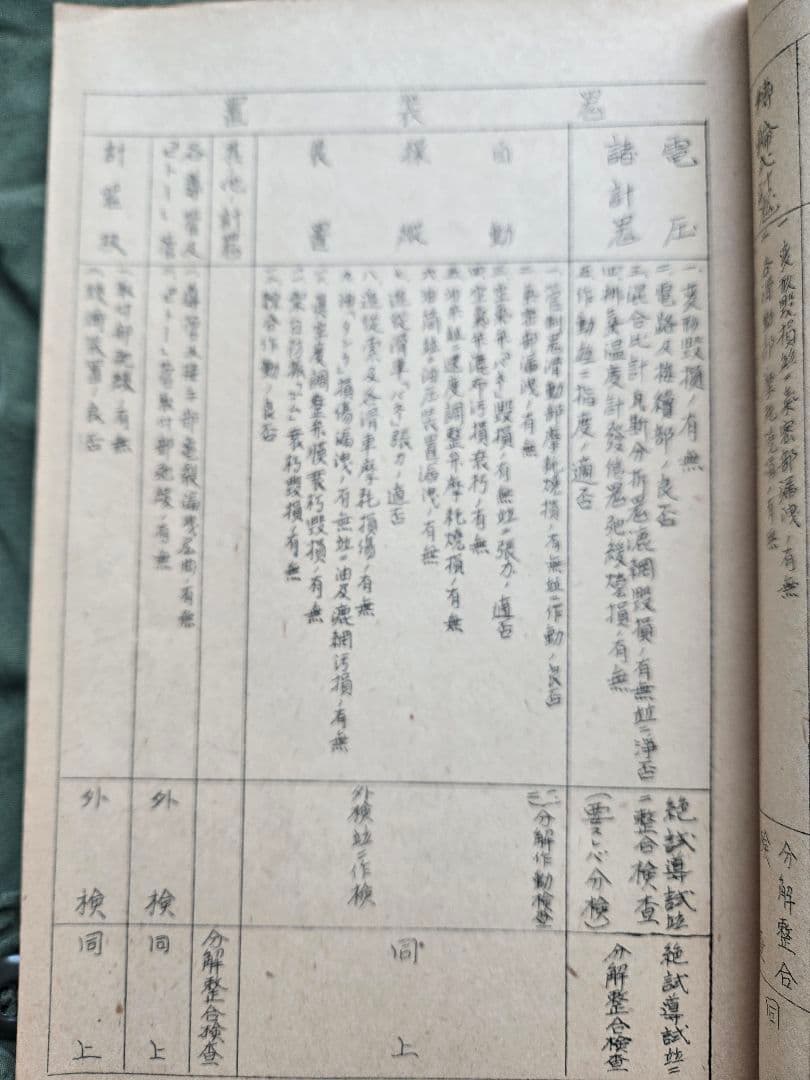 傳輪
一、変形毀損並ニ氣密部漏洩ノ有無
分解整合
同
器 装 置
電圧
諸計器
一、変形毀損ノ有無
二、電路及接續部ノ良否
三、混合比計瓦斯分析器濾網毀損ノ有無並ニ淨否
四、排氣温度計發信器弛緩燒損ノ有無
五、作動並ニ指度ノ適否
絶試導試並
ニ整合檢査
(要スレバ分檢)
絶試導試並ニ
分解整合檢査
自動
操縦
装置
一、管制器滑動部摩耗燒損ノ有無並ニ作動ノ良否
二、氣密部漏洩ノ有無
三、空氣弁「バネ」毀損ノ有無並ニ張力ノ適否
四、空氣弁濾布汚損衰朽ノ有無
五、油弁並ニ速度調整弁摩耗燒損ノ有無
六、油筒並ニ油圧装置漏洩ノ有無
七、進從滑車「バネ」張力ノ適否
八、進從索及各滑車摩耗損傷ノ有無
九、油「タンク」損傷漏洩ノ有無並ニ油及濾網汚損ノ有無
眞空度調整弁膜衰朽毀損ノ有無
架台防振「ゴム」衰朽毀損ノ有無
綜合作動ノ良否
分解作動檢査
外檢並ニ作檢
同上
其他ノ計器
分解整合檢査
各導管及
「ピトー」管
一、導管及接手部亀裂漏洩屈曲ノ有無
二、「ピトー」管取付部弛緩ノ有無
外檢
同上
計器板
一、取付部弛緩ノ有無
二、緩衝装置ノ良否
外檢
同上